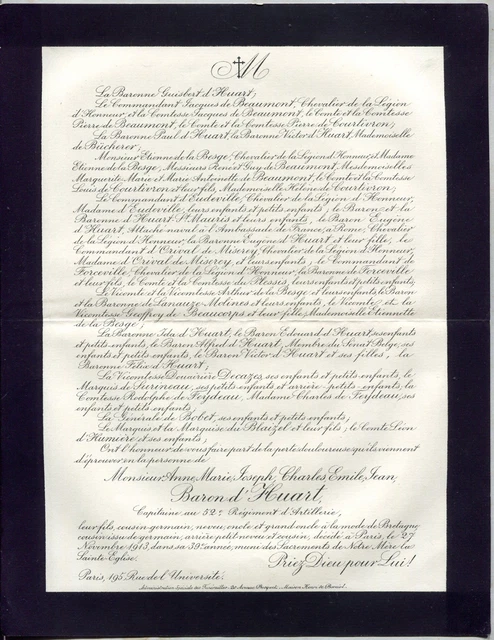 M
La Baronne Guisbert d'Huart;
Le Commandant Jacques de Beaumont, Chevalier de la Légion
d'Honneur et la Comtesse Jacques de Beaumont, le Comte et la Comtesse
Pierre de Beaumont, le Comte et la Comtesse Pierre de Courtivron;
La Baronne Paul d'Huart, la Baronne Victor d'Huart, Mademoiselle
de Bücherer;
Monsieur Etienne de la Besge, Chevalier de la Légion d'Honneur, et Madame
Etienne de la Besge, Messieurs Henri et Guy de Beaumont, Mesdemoiselles
Marguerite Marie et Marie Antoinette de Beaumont, le Comte et la Comtesse
Louis de Courtivron et leur fils, Mademoiselle Hélène de Courtivron;
Le Commandant d'Eudeville, Chevalier de la Légion d'Honneur,
Madame d'Eudeville, leurs enfants et petits enfants, le Baron et la
Baronne d'Huart St Mauris et leurs enfants, le Baron Eugène
d'Huart, Attaché naval à l'Ambassade de France, à Rome, Chevalier
de la Légion d'Honneur, la Baronne Eugène d'Huart et leur fille, le
Commandant d'Orival de Miserey, Chevalier de la Légion d'Honneur,
Madame d'Orival de Miserey, et leurs enfants; le Commandant de
Forceville, Chevalier de la Légion d'Honneur, la Baronne de Forceville
et leur fils, le Comte et la Comtesse du Plessis, leurs enfants et petits enfants;
Le Vicomte et la Vicomtesse Arthur de la Besge, et leurs enfants, le Baron
et la Baronne de Lanauze-Molines et leurs enfants, le Vicomte et la
Vicomtesse Geoffroy de Beaucorps et leur fille, Mademoiselle Etiennette
de la Besge;
La Baronne Ida d'Huart, le Baron Edouard d'Huart, ses enfants
et petits enfants, le Baron Alfred d'Huart, Membre du Sénat Belge, ses
enfants et petits enfants, le Baron Victor d'Huart et ses filles, la
Baronne Félix d'Huart;
La Vicomtesse Douairière Decazes, ses enfants et petits enfants, le
Marquis de Surineau, ses petits enfants et arrière-petits-enfants, la
Comtesse Rodolphe de Feydeau, Madame Charles de Feydeau, ses
enfants et petits enfants;
La Générale de Bobet, ses enfants et petits enfants;
Le Marquis et la Marquise du Blaizel et leur fils; le Comte Léon
d'Humière et ses enfants;
Ont l'honneur de vous faire part de la perte douloureuse qu'ils viennent
d'éprouver en la personne de
Monsieur Anne, Marie, Joseph, Charles Emile, Jean,
Baron d'Huart,
Capitaine au 52e Régiment d'Artillerie,
leur fils, cousin-germain, neveu, oncle et grand oncle à la mode de Bretagne,
cousin issu de germain, arrière petit neveu et cousin, décédé à Paris, le 27
Novembre 1913, dans sa 39e année, muni des Sacrements de Notre Mère la
Sainte-Eglise.
Priez Dieu pour Lui!
Paris, 195, Rue de l'Université.